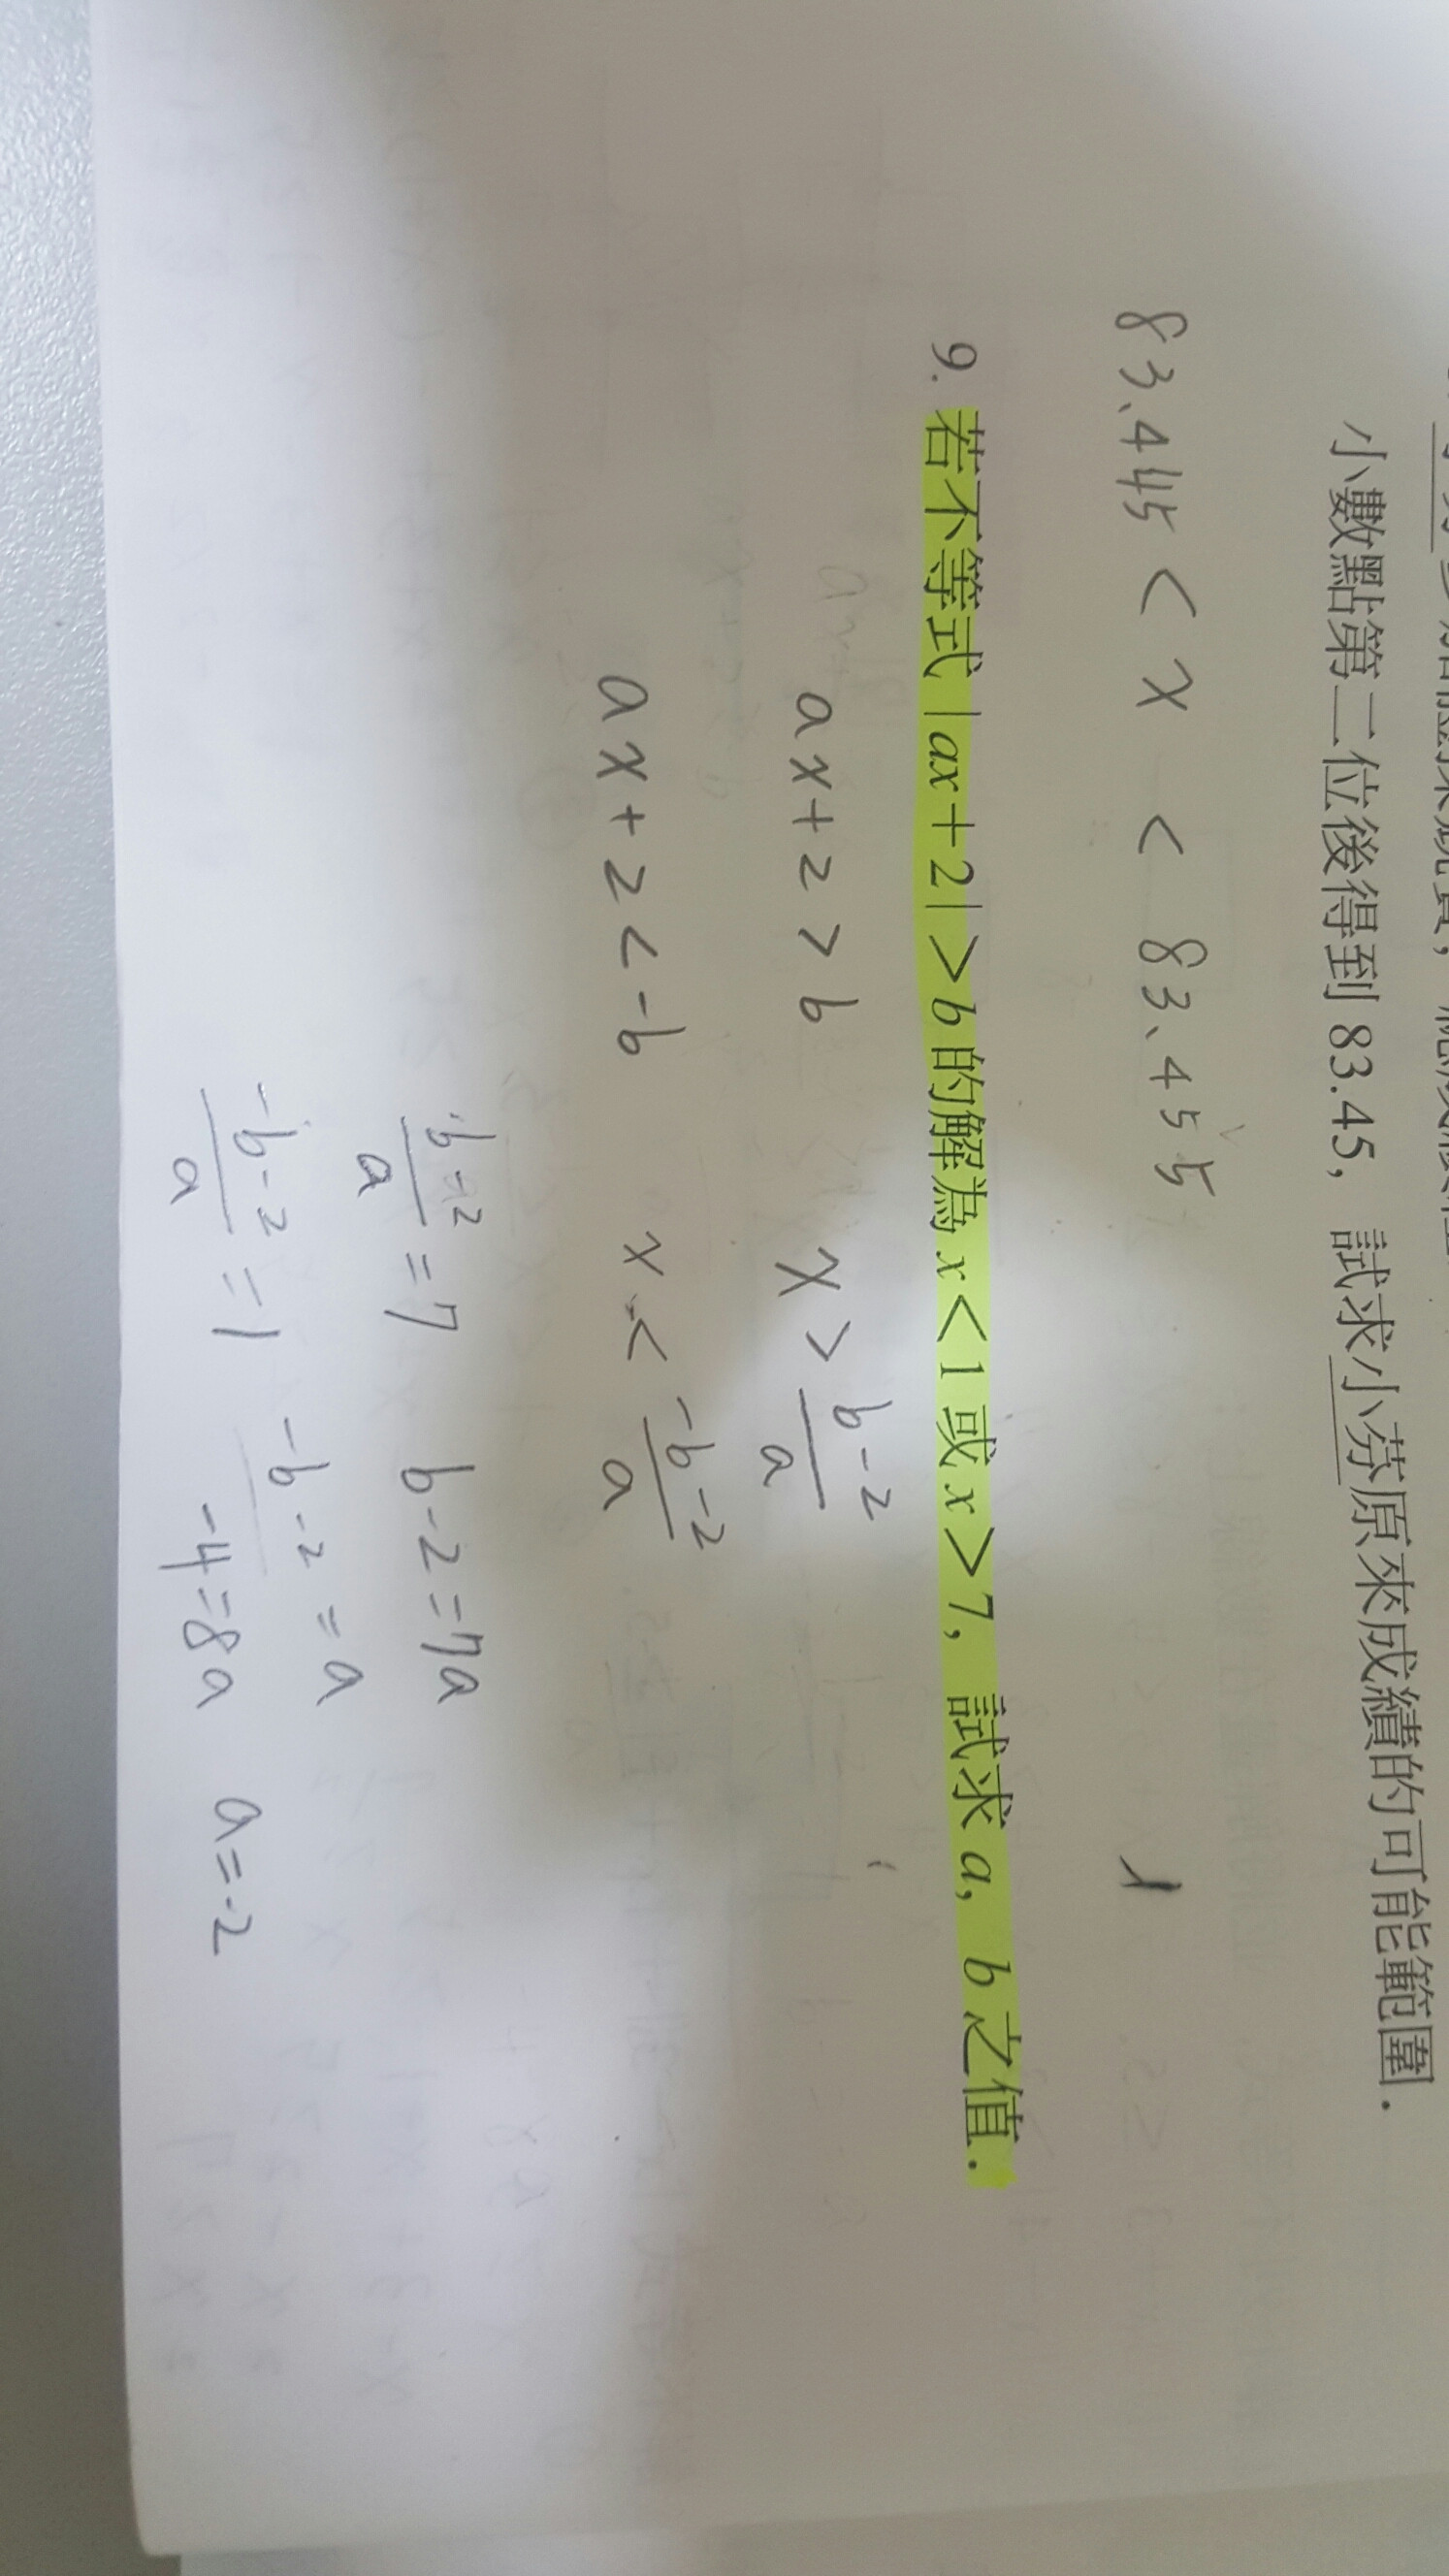 小數點第二位後得到 83.45，試求小芬原來成績的可能範圍.
83.445 < x < 83.455
9. 若不等式 |ax+2|>b 的解為 x<1 或 x>7，試求 a, b 之值.
ax+2>b x > \frac{b-2}{a}
ax+2<-b x < \frac{-b-2}{a}
\frac{b-2}{a} = 7 b-2=7a
\frac{-b-2}{a} = 1 -b-2=a
-4=8a a=-2